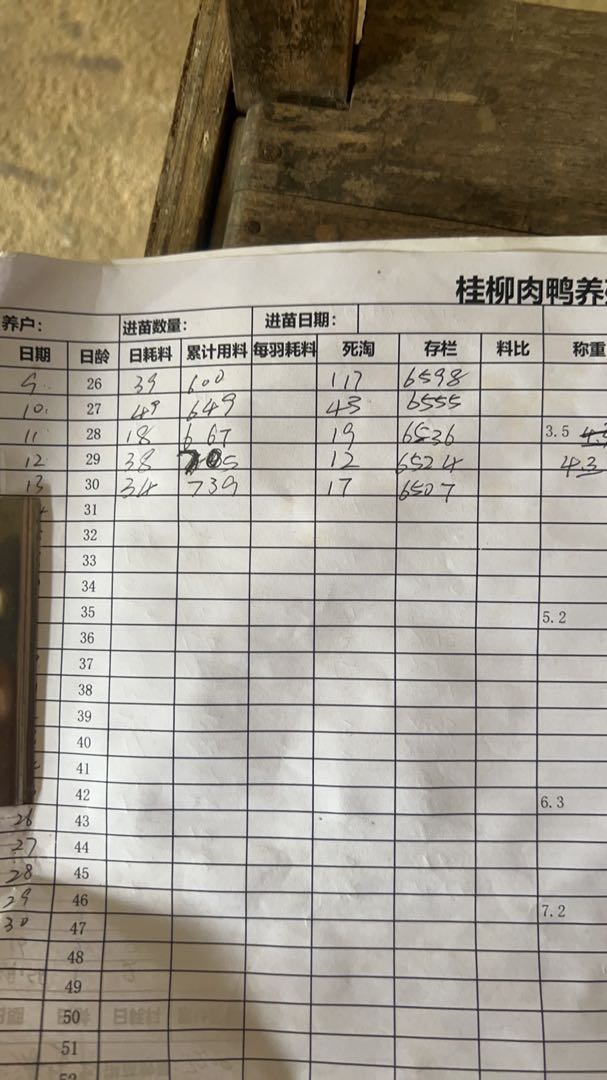 桂柳肉鸭养
养户: 进苗数量: 进苗日期:
日期 日龄 日耗料 累计用料 每羽耗料 死淘 存栏 料比 称重
9. 26 39 600 117 6598
10. 27 49 649 43 6555
11 28 18 667 19 6536 3.5
12 29 38 705 12 6524 4.3
13 30 34 739 17 6507
31
32
33
34
35 5.2
36
37
38
39
40
41
42 6.3
26 43
27 44
28 45
29 46 7.2
30 47
48
49
50
51